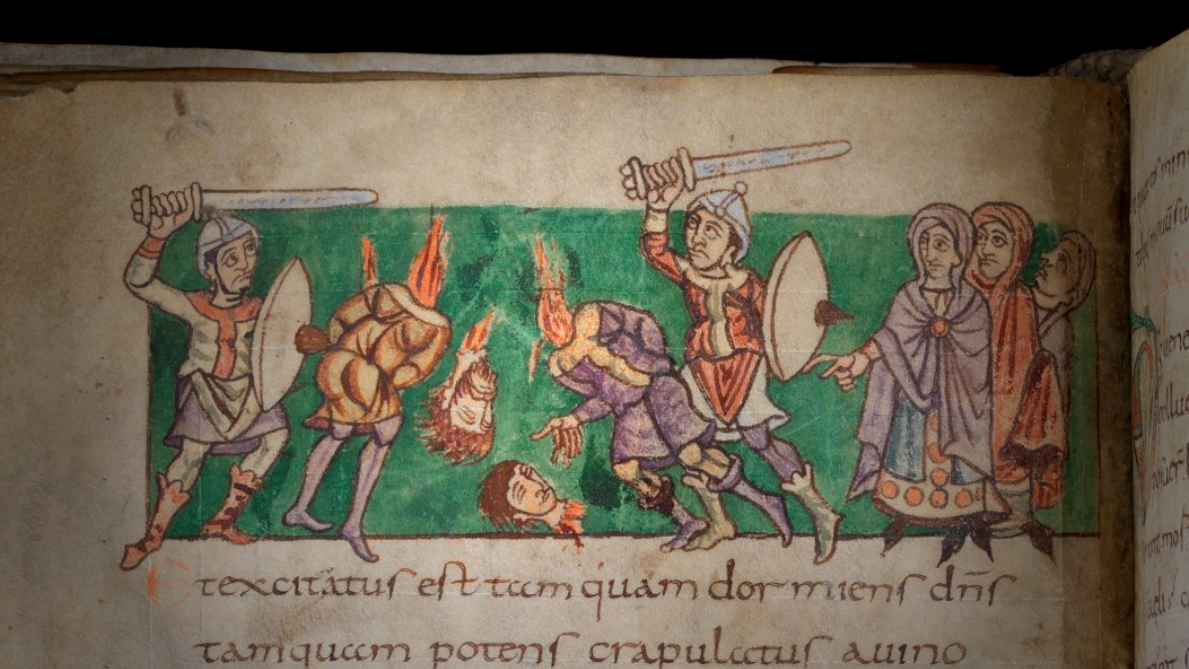 Et excitatus est tamquam dormiens dn̄s
tamquam potens crapulatus a uino